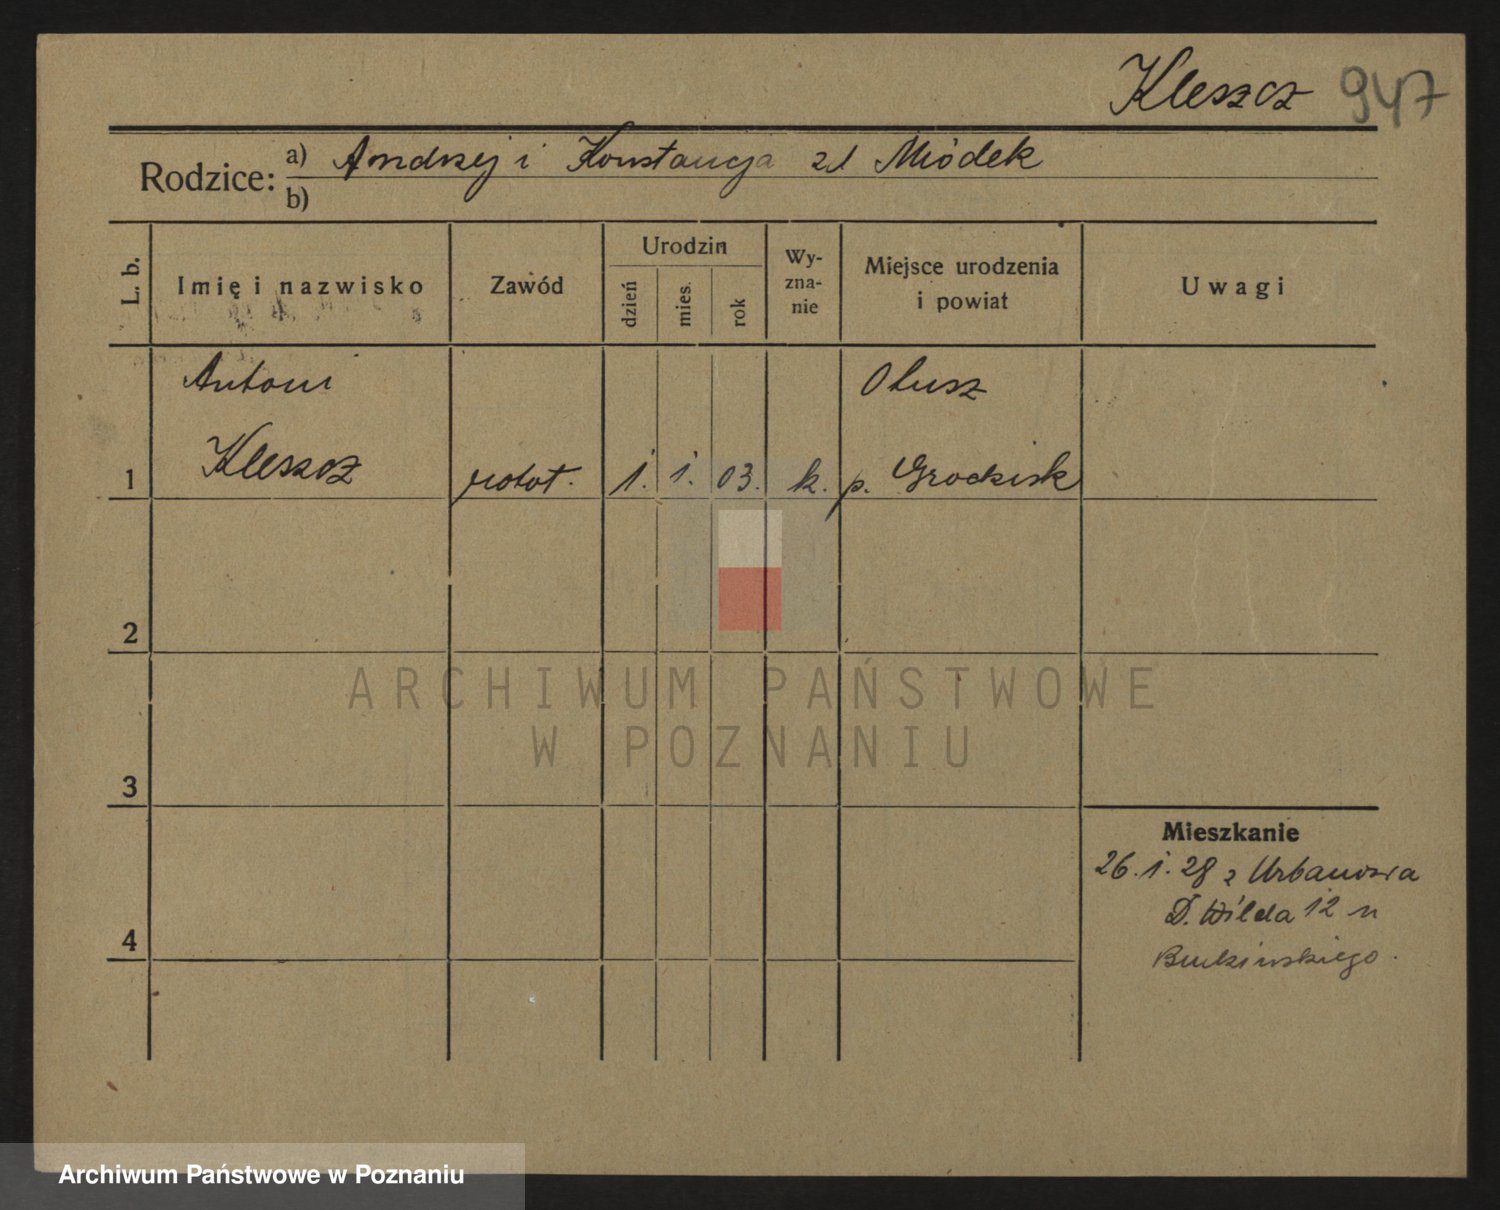 Kleszcz 947
Rodzice: a) Andrzej i Konstancja zd Miódek
b)
L. b.
Imię i nazwisko
Zawód
Urodzin
dzień
mies.
rok
Wy-
zna-
nie
Miejsce urodzenia
i powiat
Uwagi
Antoni
Olusz
1 Kleszcz robot. 1. 1. 03. k. p. Grodzisk
2
ARCHIWUM PAŃSTWOWE
W POZNANIU
3
Mieszkanie
26. 1. 28 z Urbanowa
D. Wilda 12 u
4
Archiwum Państwowe w Poznaniu